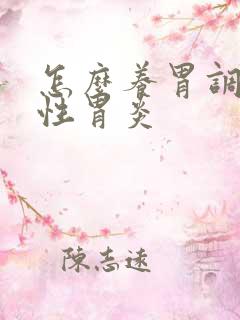 怎麼養胃調
性胃炎
陳志遠